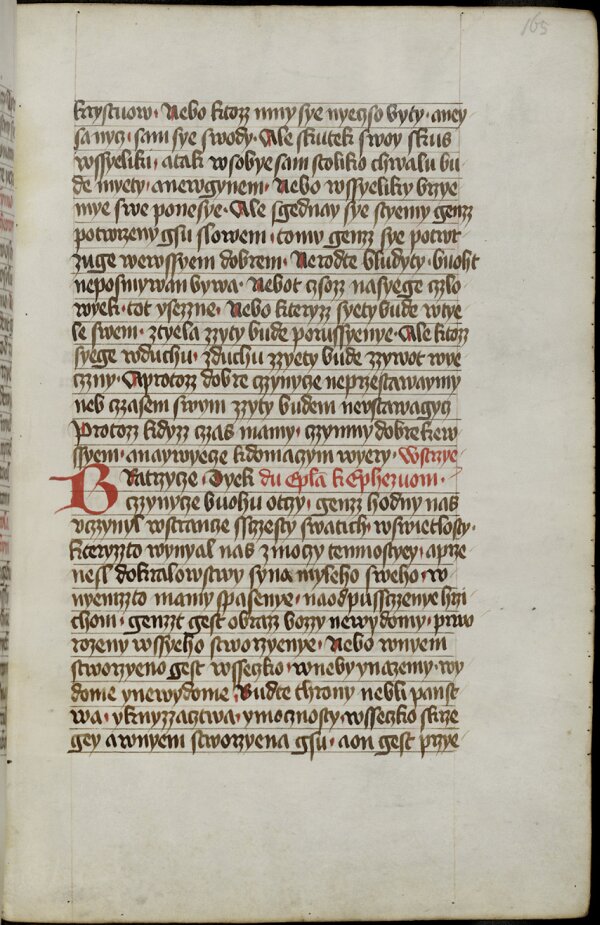 165
krystuow · Nebo ktozz mny sye nyeczso byty · aney
sa nycz · sam sye swody · Ale skutek swoy skus
wssyeliki · a tak w sobye sam stoliko chwalu bu
de myety · a new gynem · Nebo wssyeliky brzye
mye swe ponesye · Ale sgednay sye styemy genzz
potwrzeny gsu slowem · tomu genzz sye potwr
zuge we wssyem dobrem · Nerodte bluditi · buoh
neposmywan bywa · Nebot czsozz nasyege czlo
wyek · tot yse zne · Nebo kteryzz syety bude w tye
le swem · z tyela zzyty bude porussyenye · Ale ktozz
syege w duchu · z duchu zzyety bude zzywot wye
czny · A protozz dobre czynycze neprzestawaymy
neb czasem swym zzyty budem neustawagycz
Protozz kdyzz czas mamy · czynmy dobre kew
ssyem · a naywyecze k domaczym wyery · W strzye
Bratrzycze · Dyek du Epla k Ephezuom ·
czynycze buohu otczy · genzz hodny nas
uczynyl w strancze ssczesty swatich · w swietlosty ·
kteryzzto wynyal nas z moczy temnostyey · a prze
nesl do kralowstwy syna myleho sweho · w
nyemzzto mamy spasenye · na odpussczenye hrzi
chom · genzzt gest obrazz bozzy newydomy · prwo
rozeny wssyeho stworzyenye · Nebo w nyem
stworzyeno gest wsseczko · w neby y na zemy · wy
dome y newydome · Budte throny nebli panst
wa · y knyzzacztwa · y mocznosty · wsseczko skrze
gey a w nyem stworzyena gsu · a on gest przye